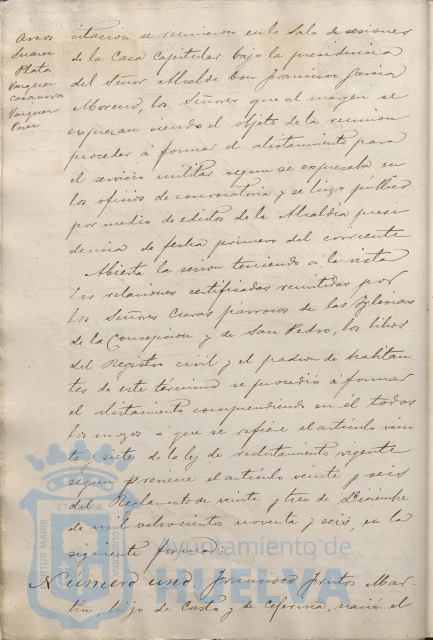 Arcos
Suarez
Plata
Vazquez
Casanova
Vazquez
Perez
citacion se reunieron en la Sala de sesiones
de la Casa Capitular bajo la presidencia
del Señor Alcalde Don Francisco Garcia
Moreno, los Señores que al margen se
expresan siendo el objeto de la reunion
proceder á formar el alistamiento para
el servicio militar segun se expresaba en
los oficios de convocatoria y se hizo publico
por medio de edictos de la Alcaldia presi
dencia de fecha primero del corriente
Abierta la sesion teniendo á la vista
las relaciones certificadas remitidas por
los Señores Curas parrocos de las Iglesias
de la Concepcion y de San Pedro, los libros
del Registro civil y el padron de habitan
tes de este término se procedió á formar
el alistamiento comprendiendo en él todos
los mozos á que se refiere el artículo vein
te y siete de la ley de reclutamiento vigente
segun previene el artículo veinte y seis
del Reglamento de veinte y tres de Diciembre
de mil ochocientos noventa y seis, en la
siguiente forma:
Número uno. Francisco Frutos Mar
tin, hijo de Casto y de Ceferina, nació el
Ayuntamiento de
HUELVA